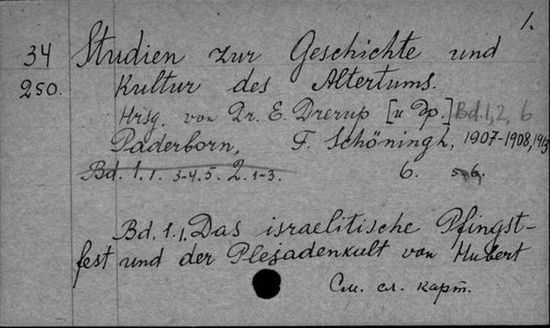 1.
34 Studien zur Geschichte und
250. Kultur des Altertums.
Hrsg. von Dr. E. Drerup [u dp.] Bd. 1, 2, 6
Paderborn, F. Schöningh, 1907-1908, 1913
Bd. 1.1. 3-4.5. 2.1-3. 6.
Bd. 1.1. Das israelitische Pfingst-
fest und der Plejadenkult von Hubert
См. сл. карт.